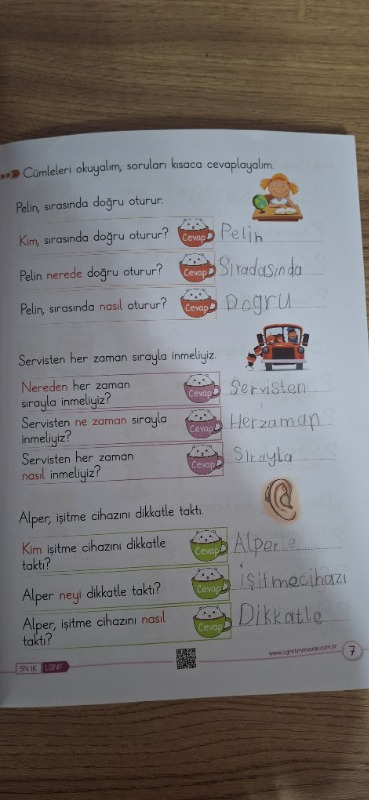 Cümleleri okuyalım, soruları kısaca cevaplayalım.
Pelin, sırasında doğru oturur.
Kim, sırasında doğru oturur? Cevap Pelin
Pelin nerede doğru oturur? Cevap Sıradasında
Pelin, sırasında nasıl oturur? Cevap Doğru
Servisten her zaman sırayla inmeliyiz.
Nereden her zaman
sırayla inmeliyiz? Cevap Servisten
Servisten ne zaman sırayla
inmeliyiz? Cevap Herzaman
Servisten her zaman
nasıl inmeliyiz? Cevap Sırayla
Alper, işitme cihazını dikkatle taktı.
Kim işitme cihazını dikkatle
taktı? Cevap Alper
Alper neyi dikkatle taktı? Cevap işitmecihazı
Alper, işitme cihazını nasıl
taktı? Cevap Dikkatle
1.SINIF
7